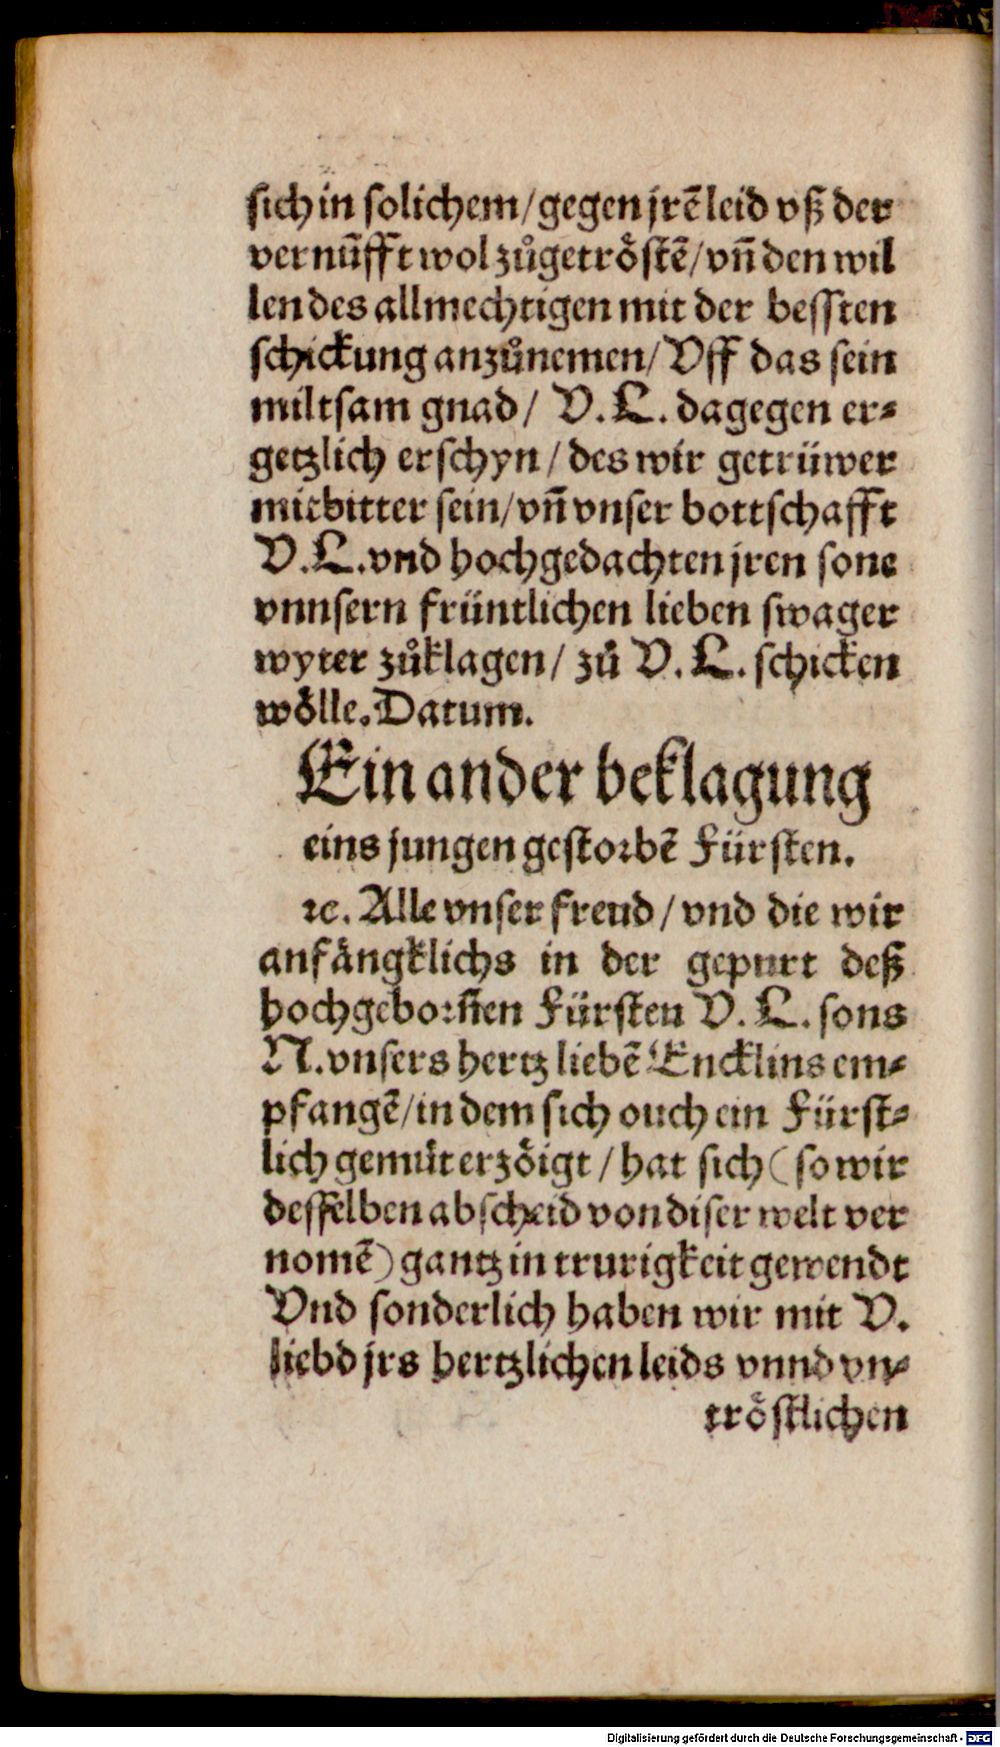 sich in solichem/gegen jrē leid vß der
vernūfft wol zůgetröstē/vn̄ den wil
len des allmechtigen mit der bessten
schickung anzůnemen/Vff das sein
miltsam gnad/ V.L. dagegen er⸗
getzlich erschyn/des wir getrüwer
mitbitter sein/vn̄ vnser bottschafft
V.L.vnd hochgedachten jren sone
vnnsern früntlichen lieben swager
wyter zůklagen/ zů V.L. schicken
wölle. Datum.
Ein ander beklagung
eins jungen gestorbē Fürsten.
ꝛc. Alle vnser freud/vnd die wir
anfängklichs in der gepurt deß
hochgebornēn Fürsten V.L. sons
N.vnsers hertz liebē Encklins em⸗
pfangē/in dem sich ouch ein Fürst⸗
lich gemüt erzöigt/hat sich (so wir
desselben abscheid von diser welt ver
nomē) gantz in trurigkeit gewendt
Vnd sonderlich haben wir mit V.
liebd jrs hertzlichen leids vnnd vn⸗
tröstlichen
Digitalisierung gefördert durch die Deutsche Forschungsgemeinschaft - DFG